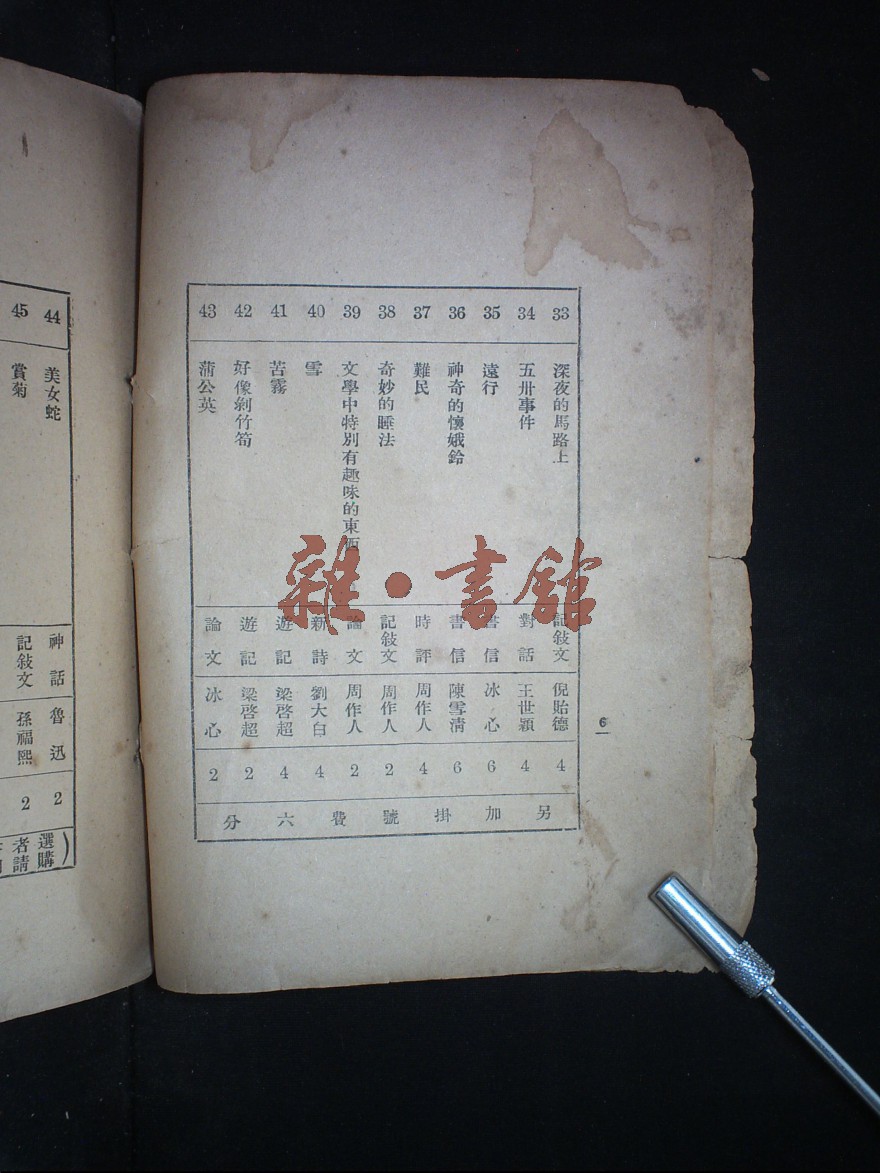 33 深夜的馬路上 記敍文 倪貽德 4
34 五卅事件 對話 王世穎 4
35 遠行 書信 冰心 6
36 神奇的懷娥鈴 書信 陳雪清 6
37 難民 時評 周作人 4
38 奇妙的睡法 記敍文 周作人 2
39 文學中特別有趣味的東西 論文 周作人 2
40 雪 新詩 劉大白 4
41 苦霧 遊記 梁啓超 4
42 好像剝竹筍 遊記 梁啓超 2
43 蒲公英 論文 冰心 2
另加掛號費六分
6
44 美女蛇 神話 魯迅 2
45 賞菊 記敍文 孫福熙 2
)選購
者請
雜·書館